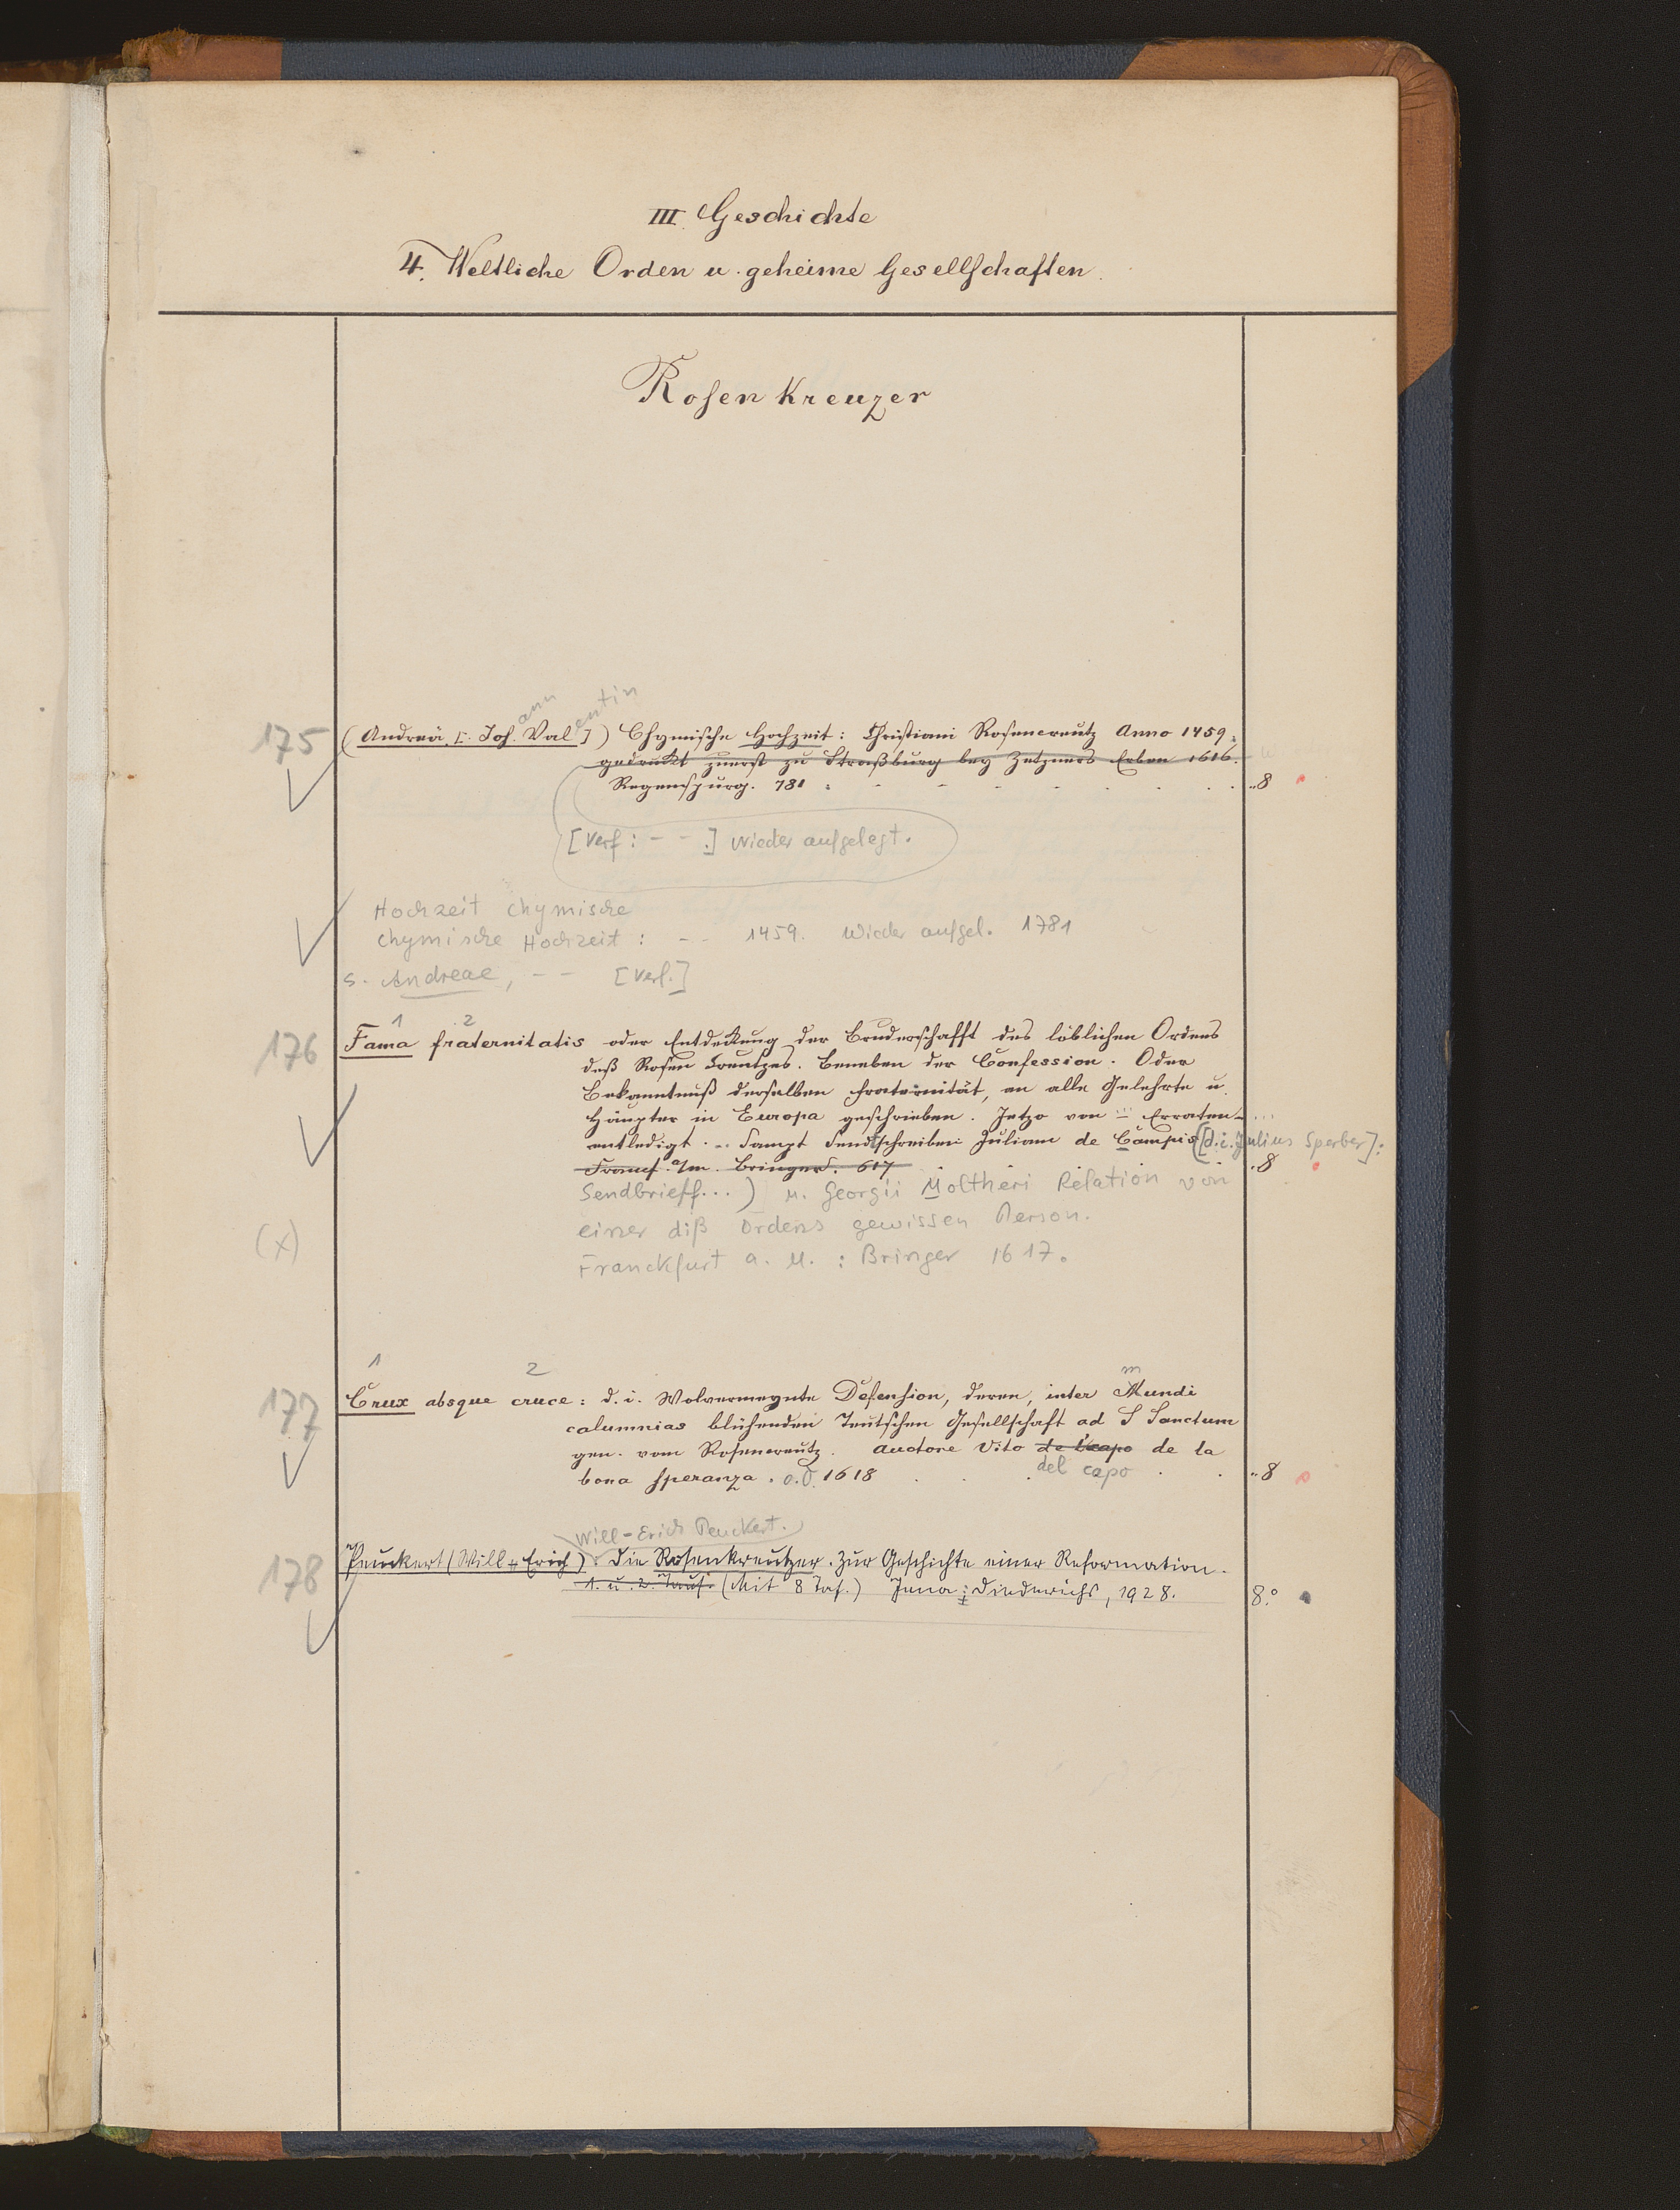 III. Geschichte
4. Weltliche Orden u. geheime Gesellschaften.
Rosenkreuzer
ann entin
175 (Andreä [: Joh. Val ]) Chymische Hochzeit: Christiani Rosencreutz Anno 1459.
gedruckt zuerst zu Straßburg bey Zetzners Erben 1616.
Regenspurg. 781 . - - - - . . . . "8
[Verf: - - .] wieder aufgelegt.
Hochzeit chymische
chymische Hochzeit: - - 1459. Wieder aufgel. 1781
s. Andreae, - - [Verf.]
1 2
176 Fama fraternitatis oder Entdeckung der Bruderschafft des löblichen Ordens
deß Rosen Creutzes. Beneben der Confession. Oder
Bekanntnuß derselben Fraternität, an alle Gelehrte u.
Häupter in Europa geschrieben. Jetzo von ... Erraten ...
entledigt. - Sampt Sendtschreiben Juliani de Campis ([d.i. Julius Sperber]:
Francf. a/m. Bringer. 617 . 8
Sendbrieff...) u. Georgii Moltheri Relation von
einer diß Ordens gewissen Person.
(x)
Franckfurt a. M. : Bringer 1617.
1 2 m
177 Crux absque cruce: d. i. Wolvermeynte Defension, deren, inter Mundi
calumnias blühenden Teutschen Gesellschaft ad S Sanctum
gen. vom Rosencreutz. Auctore Vito de l'capo de la
bona speranza. o.O. 1618 . . del capo . . "8
Will-Erich Peuckert.
178 Peuckert (Will-Erich): Die Rosenkreutzer. Zur Geschichte einer Reformation.
1. u. 2. Taus. (Mit 8 Taf.) Jena: Diederichs, 1928. 8°.